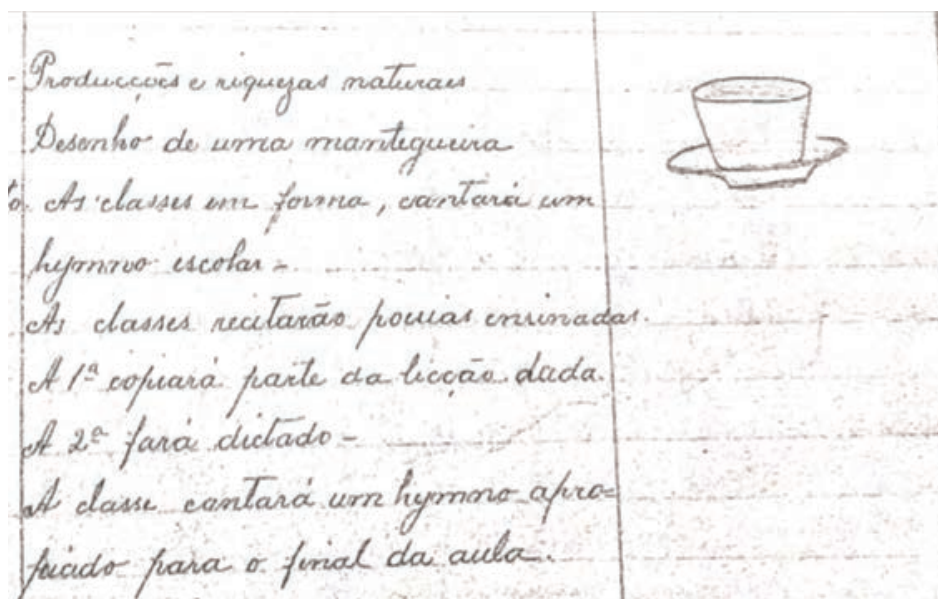 Producções e riquezas naturais
Desenho de uma mantegueira
As classes em forma, cantará um
hymno escolar -
As classes recitarão poesias ensinadas.
A 1ª copiará parte da licção dada.
A 2ª fará dictado -
A classe cantará um hymno apro=
piado para o final da aula.